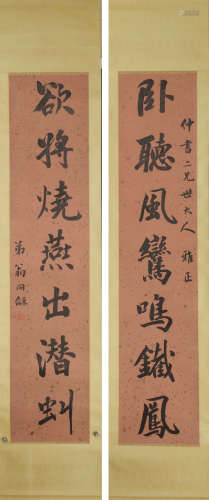 仲書二兄世大人 雅正
卧聽風鸞鳴鐵鳳
欲將燒燕出潛虯
弟翁同龢